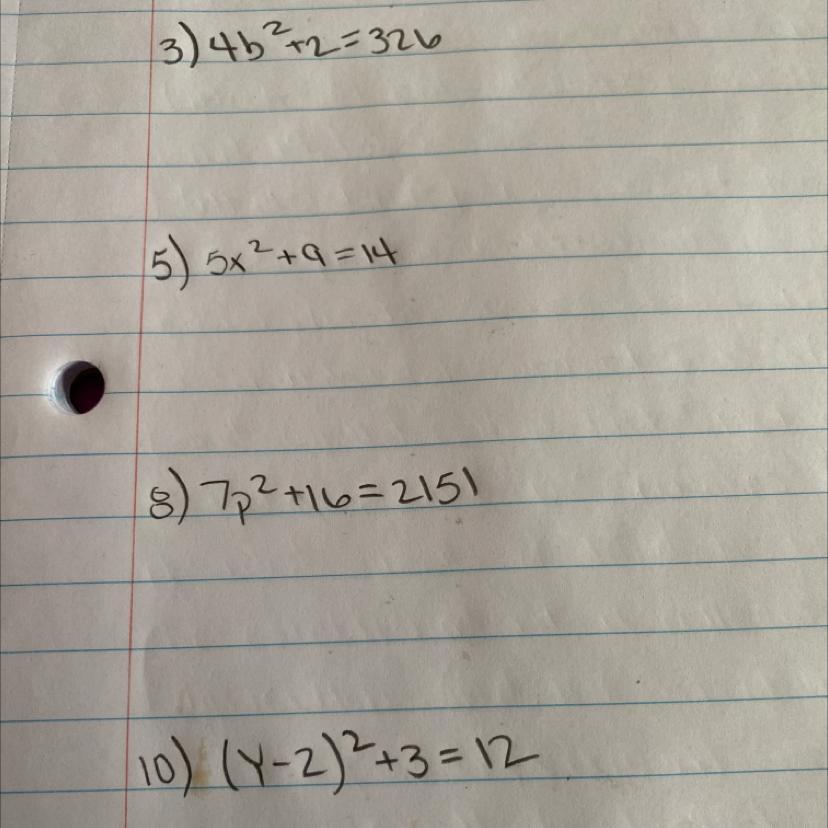 3) 4b²+2=326
5) 5x²+9=14
8) 7p²+16=2151
10) (Y-2)²+3=12